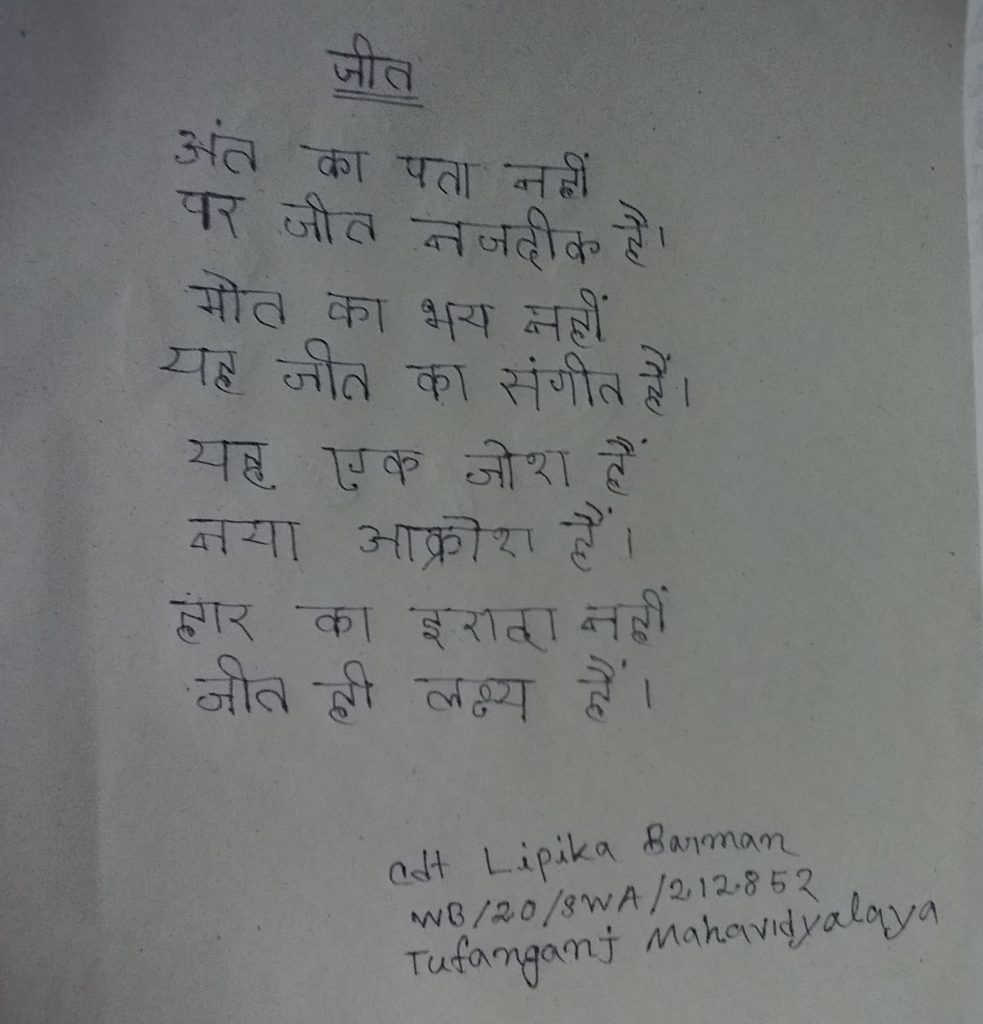 जीत
अंत का पता नहीं
पर जीत नजदीक है।
मौत का भय नहीं
यह जीत का संगीत हैं।
यह एक जोश हैं
नया आक्रोश हैं।
हार का इरादा नहीं
जीत ही लक्ष्य हैं।
cdt Lipika Barman
WB/20/SWA/212852
Tufanganj Mahavidyalaya